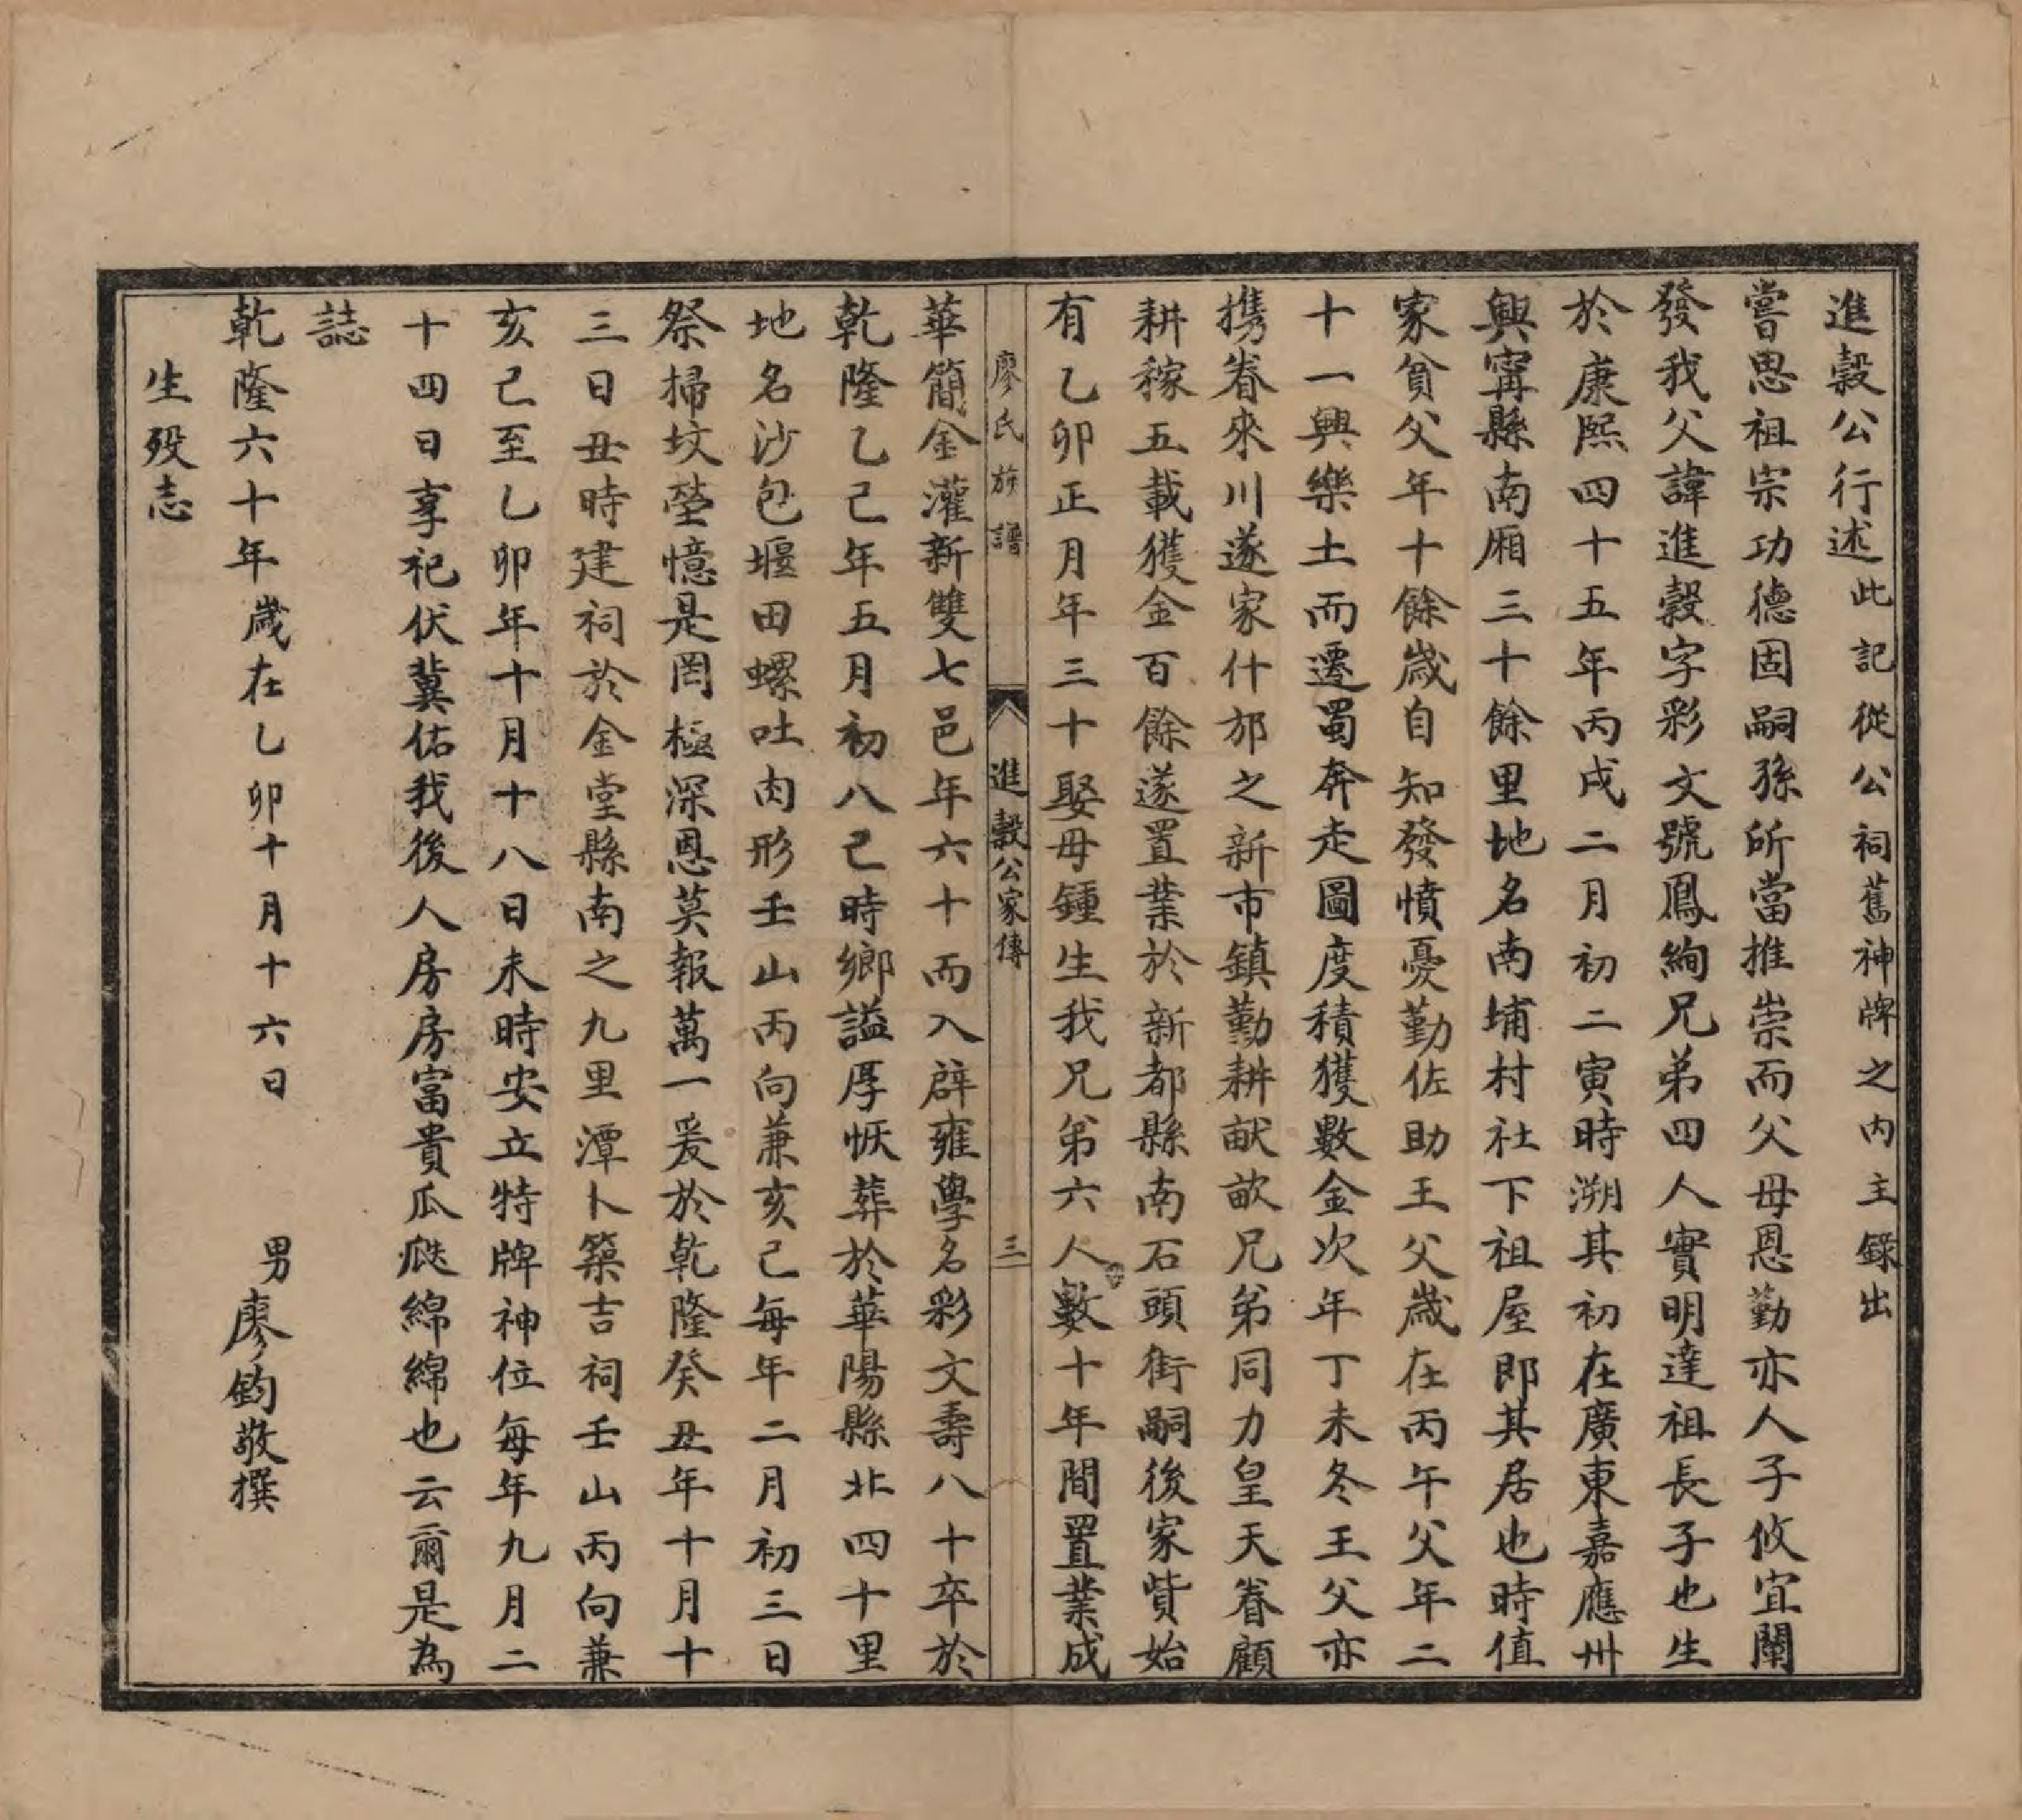 進穀公行述此記從公祠舊神牌之內主錄出
嘗思祖宗功德固嗣孫所當推崇而父母恩勤亦人子攸宜闡
發我父諱進穀字彩文號鳳絢兄弟四人實明達祖長子也生
於康熙四十五年丙戌二月初二寅時溯其初在廣東嘉應州
興寗縣南廂三十餘里地名南埔村社下祖屋即其居也時值
家貧父年十餘歲自知發憤憂勤佐助王父歲在丙午父年二
十一興樂土而遷蜀奔走圖度積獲數金次年丁未冬王父亦
携眷來川遂家什邡之新市鎮勤耕猷畝兄弟同力皇天眷顧
耕稼五載獲金百餘遂置業於新都縣南石頭街嗣後家貲始
有乙卯正月年三十娶母鍾生我兄弟六人數十年間置業成
廖氏族譜 進穀公家傳 三
華簡金灌新雙七邑年六十而入辟雍學名彩文壽八十卒於
乾隆乙己年五月初八己時鄉謚厚恢葬於華陽縣北四十里
地名沙包堰田螺吐肉形壬山丙向兼亥己每年二月初三日
祭掃坟塋憶是罔極深恩莫報萬一爰於乾隆癸丑年十月十
三日丑時建祠於金堂縣南之九里潭卜築吉祠壬山丙向兼
亥己至乙卯年十月十八日未時安立特牌神位每年九月二
十四日享祀伏冀佑我後人房房富貴瓜瓞綿綿也云爾是為
誌
乾隆六十年歲在乙卯十月十六日 男廖鈞敬撰
生歿志